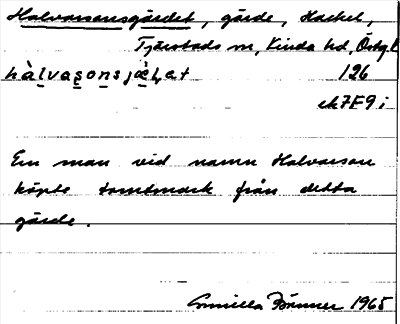 Halvarsonsgärdet, gärde, Hackel,
Tjärstads sn, Kinda hd, Östg.
hàlvasonsjæ̀ḷet 126
ek7F9i
En man vid namn Halvarson
köpte tomtmark från detta
gärde.
Gunilla Bönner 1965